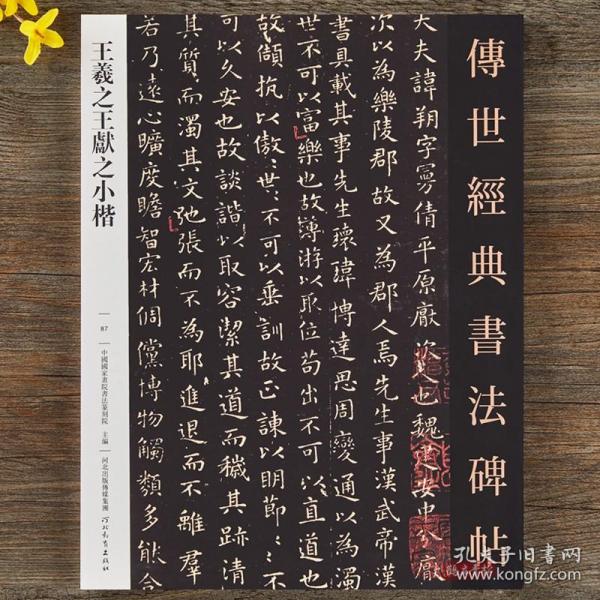 傳世經典書法碑帖
大夫諱朔字曼倩平原厭次人也魏建安中分厭
次以為樂陵郡故又為郡人焉先生事漢武帝漢
書具載其事先生瓌瑋博達思周變通以為濁
世不可以富樂也故薄游以取位苟出不可以直道也
故傾抗以傲世世不可以垂訓故正諫以明節節
可以久安也故談諧以取容潔其道而穢其跡清
其質而濁其文弛張而不為耶進退而不離群
若乃遠心曠度贍智宏材倜儻博物觸類多能合
王羲之王獻之小楷
87
中國國家畫院書法篆刻院 主編
河北出版傳媒集團
河北教育出版社
孔夫子旧书网
www.kongfz.com